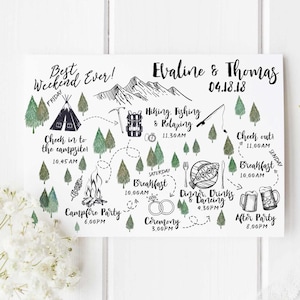 Best
Weekend Ever!
Evaline & Thomas
04.18.18
FRIDAY
Check in to
the campsite!
10.45 AM
Hiking, Fishing
& Relaxing
11.30AM
Check out!
11.00AM
SUNDAY
Breakfast
10.00AM
SATURDAY
Breakfast
10.00AM
Dinner, Drinks
& Dancing
4.30PM
Campfire Party
8.00PM
Ceremony
3.00PM
After Party
8.00PM